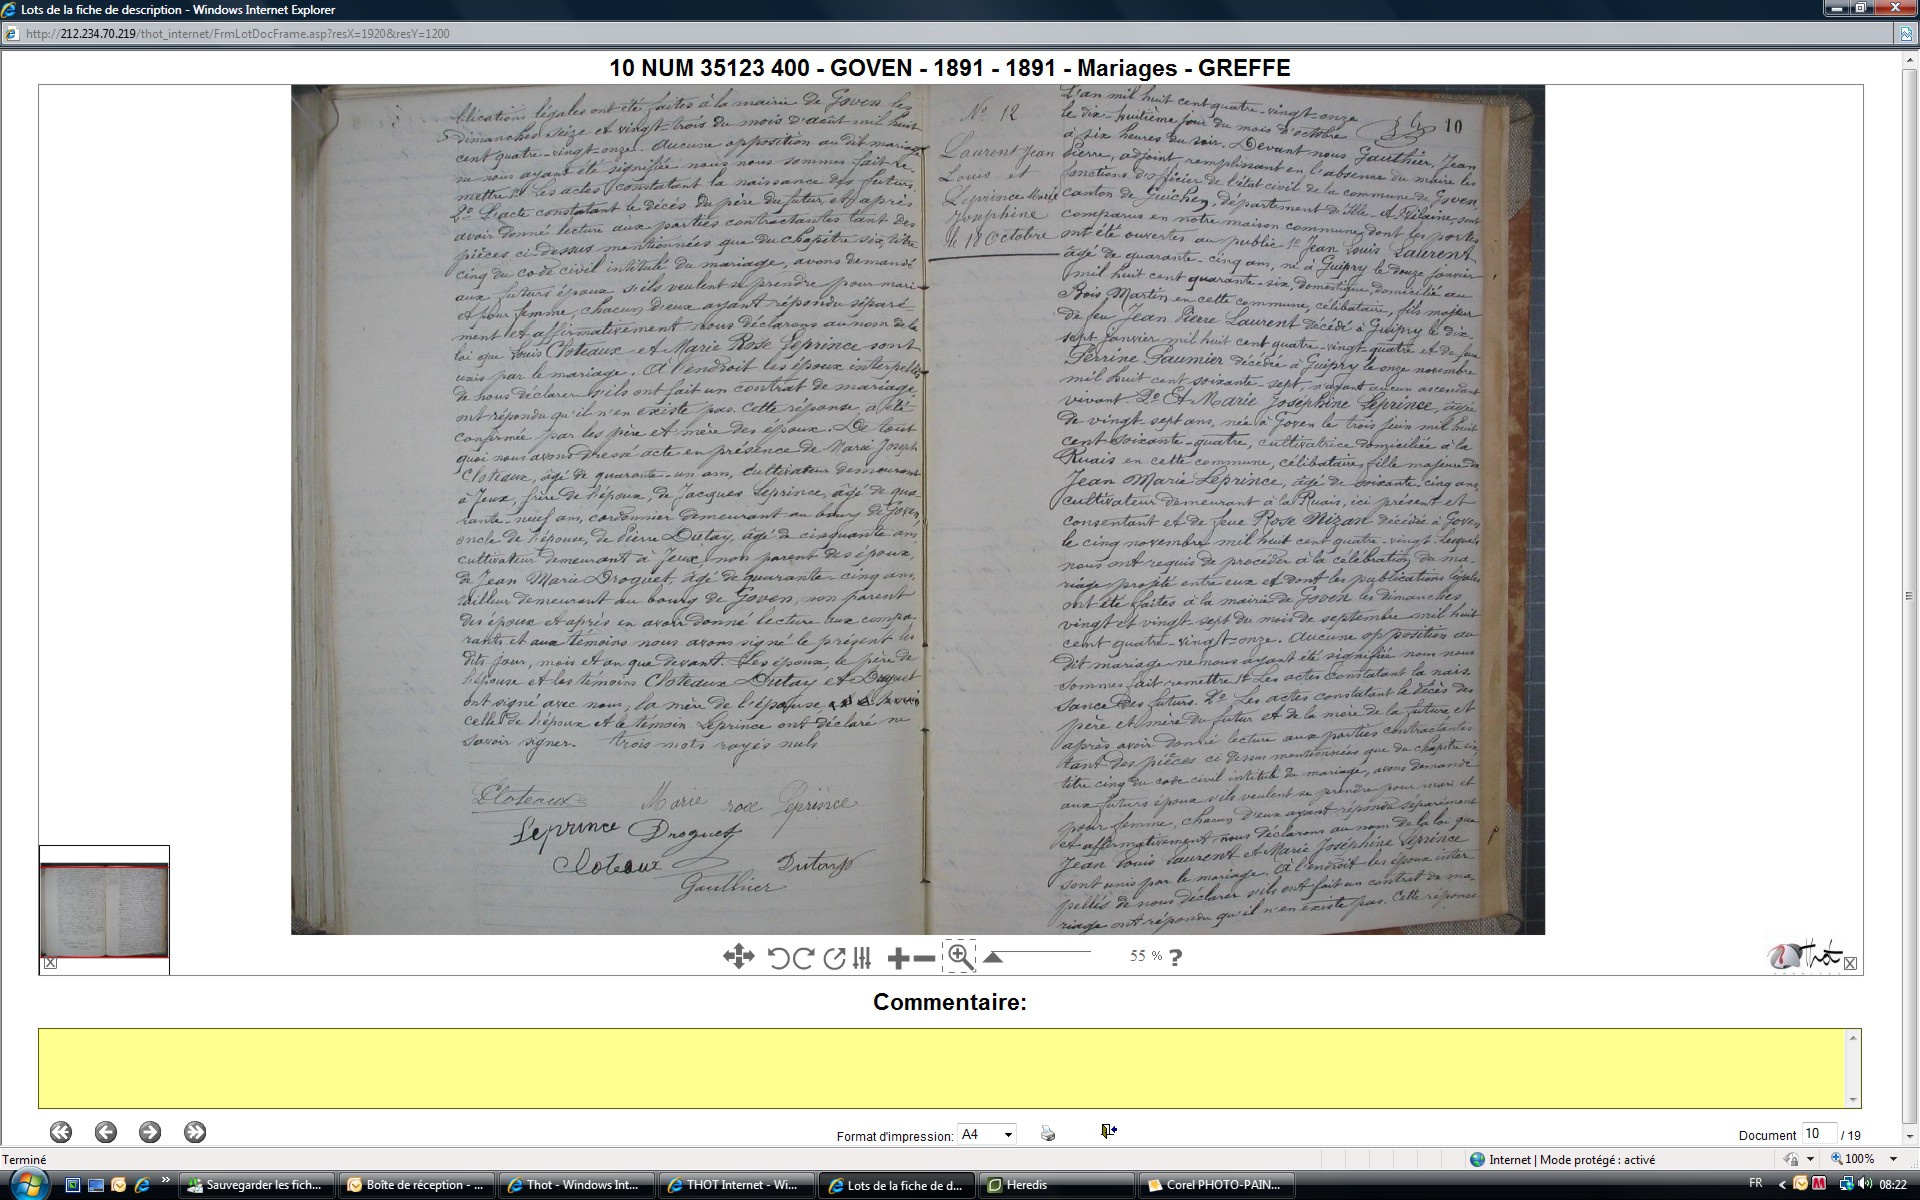 Lots de la fiche de description - Windows Internet Explorer
http://212.234.70.219/thot_internet/FrmLotDocFrame.asp?resX=1920&resY=1200
10 NUM 35123 400 - GOVEN - 1891 - 1891 - Mariages - GREFFE
blications légales ont été faites à la mairie de Goven les
dimanches seize et vingt-trois du mois d'août mil huit
cent quatre-vingt-onze. Aucune opposition au dit mariage
ne nous ayant été signifiée nous nous sommes fait re-
mettre 1° Les actes constatant la naissance des futurs.
2° L'acte constatant le décès du père du futur, et après
avoir donné lecture aux parties contractantes tant des
pièces ci-dessus mentionnées que du chapitre six, titre
cinq du code civil intitulé du mariage, avons demandé
aux futurs époux s'ils veulent se prendre pour mari
et pour femme, chacun d'eux ayant répondu séparé-
ment et affirmativement nous déclarons au nom de la
loi que Louis Cloteaux et Marie Rose Leprince sont
unis par le mariage. A l'endroit les époux interpellés
de nous déclarer s'ils ont fait un contrat de mariage,
ont répondu qu'il n'en existe pas. Cette réponse a été
confirmée par les père et mère des époux. De tout
quoi nous avons dressé acte en présence de Marie Joseph
Cloteaux, âgé de quarante-un ans, cultivateur demeurant
à Jeux, frère de l'époux, de Jacques Leprince, âgé de qua-
rante-neuf ans, cordonnier demeurant au bourg de Goven,
oncle de l'épouse, de Pierre Dutay, âgé de cinquante ans,
cultivateur demeurant à Jeux, non parent des époux,
de Jean Marie Droguet, âgé de quarante-cinq ans,
tailleur demeurant au bourg de Goven, non parent
des époux et après en avoir donné lecture aux compa-
rants et aux témoins nous avons signé le présent les
dits jour, mois et an que devant. Les époux, le père de
l'épouse et les témoins Cloteaux Dutay et Droguet
ont signé avec nous, la mère de l'épouse,
celle de l'époux et le témoin Leprince ont déclaré ne
savoir signer. trois mots rayés nuls
Cloteaux Marie rose Leprince
Leprince Droguet
Cloteaux Dutay
Gauthier
N° 12
Laurent Jean
Louis et
Leprince Marie
Josephine
le 18 Octobre
10
L'an mil huit cent quatre-vingt-onze
le dix-huitième jour du mois d'octobre
à six heures du soir. Devant nous Gauthier, Jean
Pierre, adjoint, remplissant en l'absence du maire les
fonctions d'officier de l'état civil de la commune de Goven,
canton de Guichen, département d'Ille-et-Vilaine, sont
comparus en notre maison commune dont les portes
ont été ouvertes au public 1° Jean Louis Laurent
âgé de quarante-cinq ans, né à Guipry le douze janvier
mil huit cent quarante-six, domestique, domicilié au
Bois Martin en cette commune, célibataire, fils majeur
de feu Jean Pierre Laurent décédé à Guipry le dix-
sept janvier mil huit cent quatre-vingt-quatre et de feue
Perrine Paumier décédée à Guipry le onze novembre
mil huit cent soixante-sept, n'ayant aucun ascendant
vivant. 2° Et Marie Joséphine Leprince, âgée
de vingt-sept ans, née à Goven le trois juin mil huit
cent soixante-quatre, cultivatrice domiciliée à la
Ruais en cette commune, célibataire, fille majeure de
Jean Marie Leprince, âgé de soixante-cinq ans,
cultivateur demeurant à la Ruais, ici présent et
consentant et de feue Rose Nizan décédée à Goven
le cinq novembre mil huit cent quatre-vingt. Lesquels
nous ont requis de procéder à la célébration du ma-
riage projeté entre eux et dont les publications légales
ont été faites à la mairie de Goven les dimanches
vingt et vingt-sept du mois de septembre mil huit
cent quatre-vingt-onze. Aucune opposition au
dit mariage ne nous ayant été signifiée nous nous
sommes fait remettre 1° Les actes constatant la nais-
sance des futurs. 2° Les actes constatant le décès des
père et mère du futur et de la mère de la future, et
après avoir donné lecture aux parties contractantes
tant des pièces ci dessus mentionnées que du chapitre six,
titre cinq du code civil intitulé du mariage, avons demandé
aux futurs époux s'ils veulent se prendre pour mari et
pour femme, chacun d'eux ayant répondu séparément
et affirmativement nous déclarons au nom de la loi que
Jean Louis Laurent et Marie Joséphine Leprince
sont unis par le mariage. A l'endroit les époux inter-
pellés de nous déclarer s'ils ont fait un contrat de ma-
riage ont répondu qu'il n'en existe pas. Cette réponse
55 % ?
Thot
Commentaire:
Format d'impression: A4
Document 10 / 19
Terminé
Internet | Mode protégé : activé
100%
Sauvegarder les fich...
Boîte de réception - ...
Thot - Windows Int...
THOT Internet - Wi...
Lots de la fiche de d...
Heredis
Corel PHOTO-PAIN...
FR
08:22